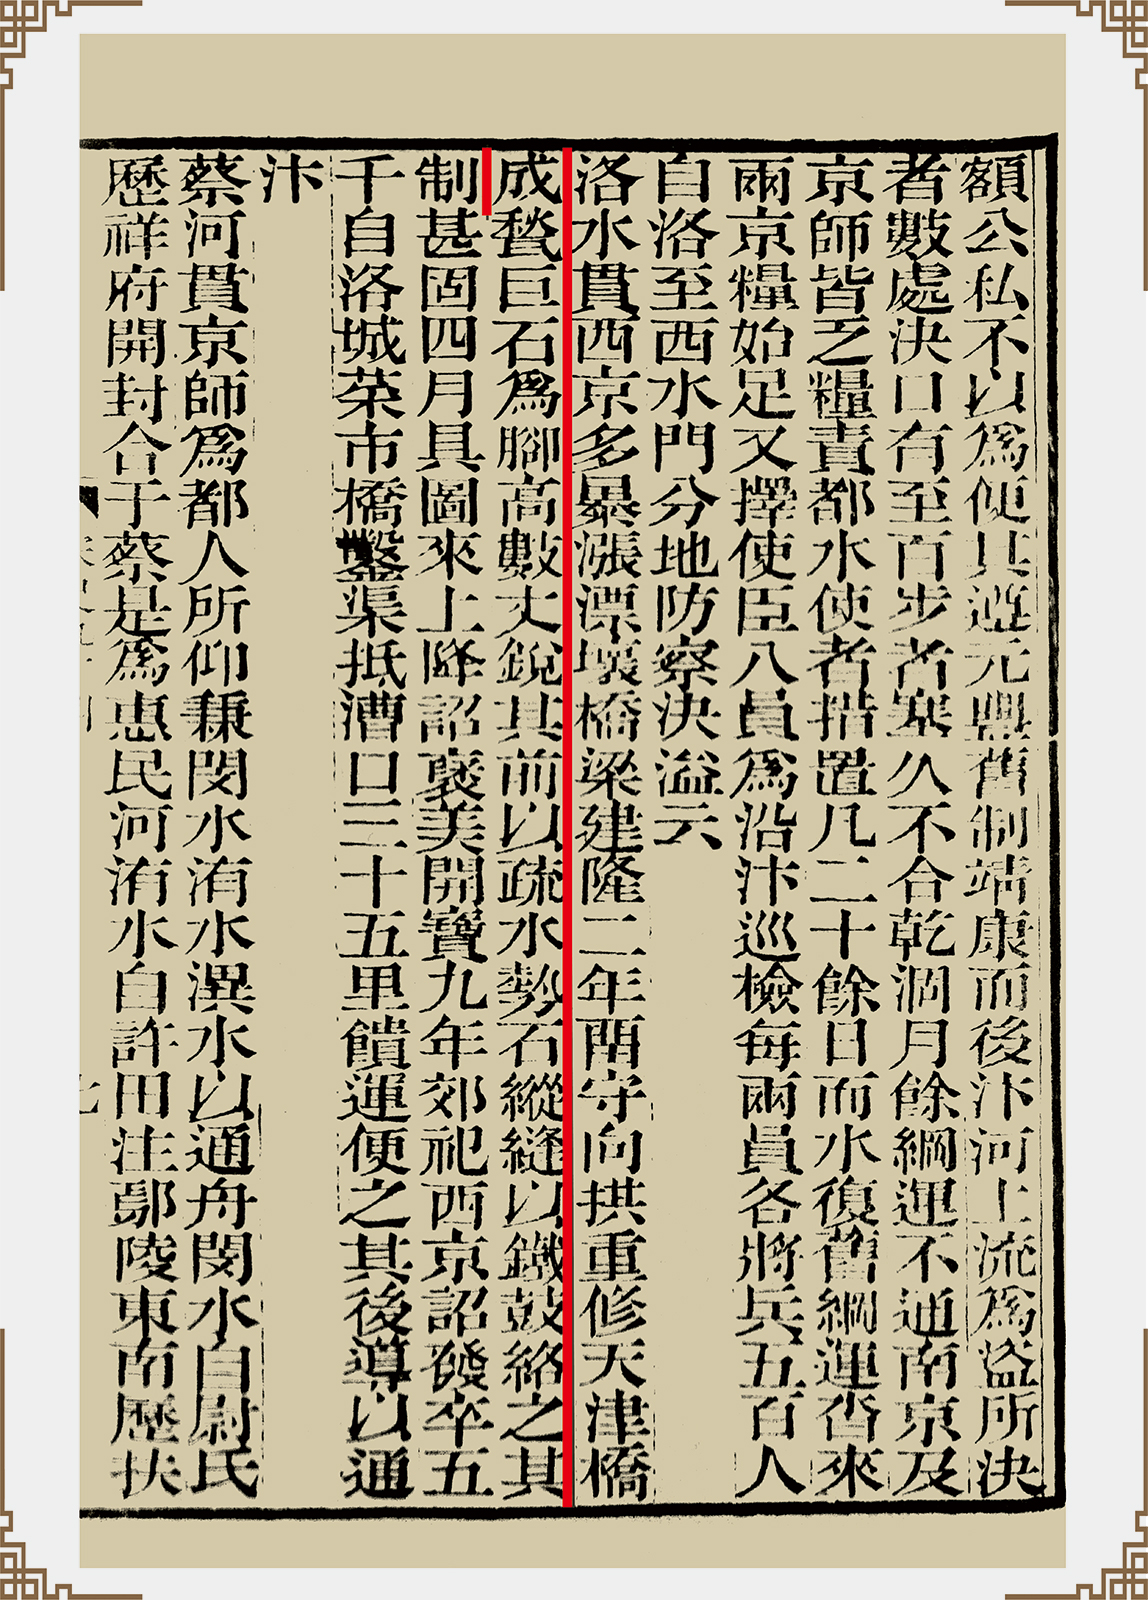 額公私不以爲便其遵元豐舊制靖康而後汴河上流爲盜所決
者數處決口有至百步者塞久不合乾涸月餘綱運不通南京及
京師皆乏糧責都水使者措置凡二十餘日而水復舊綱運沓來
兩京糧始足又擇使臣八員爲沿汴巡檢每兩員各將兵五百人
自洛至西水門分地防察決溢云
洛水貫西京多暴漲漂壞橋梁建隆二年留守向拱重修天津橋
成甃巨石爲腳高數丈銳其前以疏水勢石縱縫以鐵鼓絡之其
制甚固四月具圖來上降詔褒美開寶九年郊祀西京詔發卒五
千自洛城菜市橋鑿渠抵漕口三十五里饋運便之其後導以通
汴
蔡河貫京師爲都人所仰兼閔水洧水潩水以通舟閔水自尉氏
歷祥符開封合于蔡是爲惠民河洧水自許田注鄢陵東南歷扶